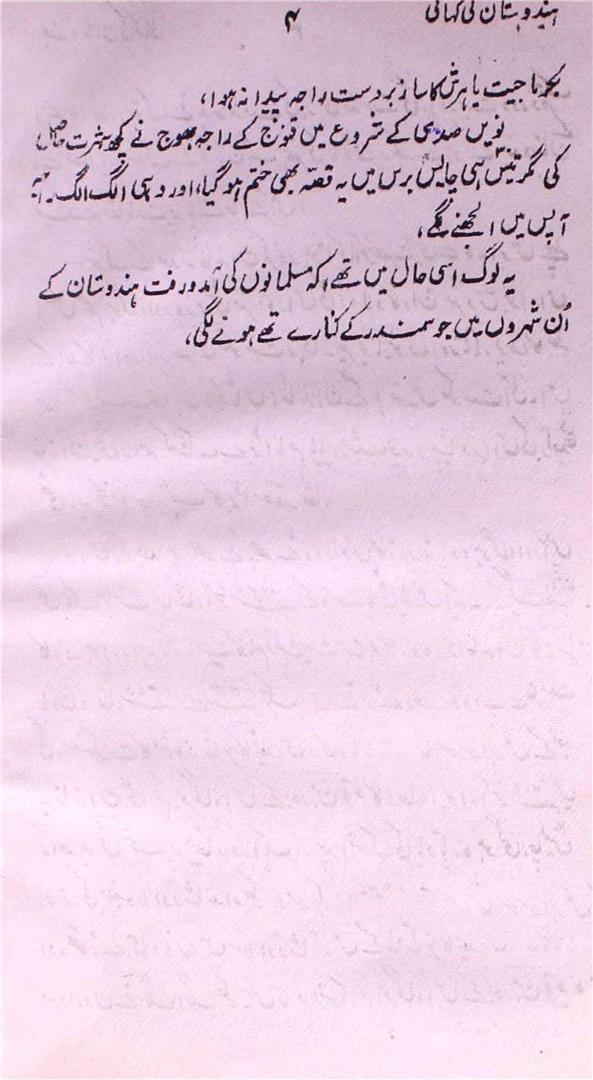 ہندوستان کی کہانی ۴
بکرماجیت یا ہرش کا سا زبردست راجہ پیدا نہ ہوا،
نویں صدی کے شروع میں قنوج کے راجہ بھوج نے کچھ شہرت حاصل
کی مگر تیس ہی چالیس برس میں یہ قصہ بھی ختم ہو گیا، اور وہی الگ الگ
آپس میں الجھنے لگے،
یہ لوگ اسی حال میں تھے کہ مسلمانوں کی آمد و رفت ہندوستان کے
اُن شہروں میں جو سمندر کے کنارے تھے ہونے لگی،